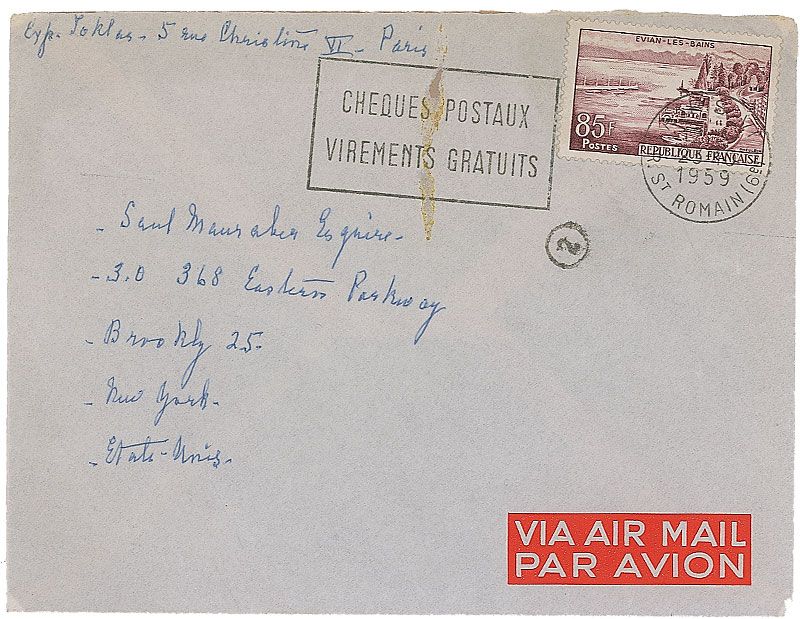 Exp. Toklas - 5 rue Christine VI - Paris
CHEQUES POSTAUX
VIREMENTS GRATUITS
EVIAN-LES-BAINS
85F
POSTES
REPUBLIQUE FRANÇAISE
1959
R. ST ROMAIN (6e)
2
- Saul Esquire -
- 3.0 368 Eastern Parkway
- Brookly 25.
- New York.
- Etats-Unis.
VIA AIR MAIL
PAR AVION